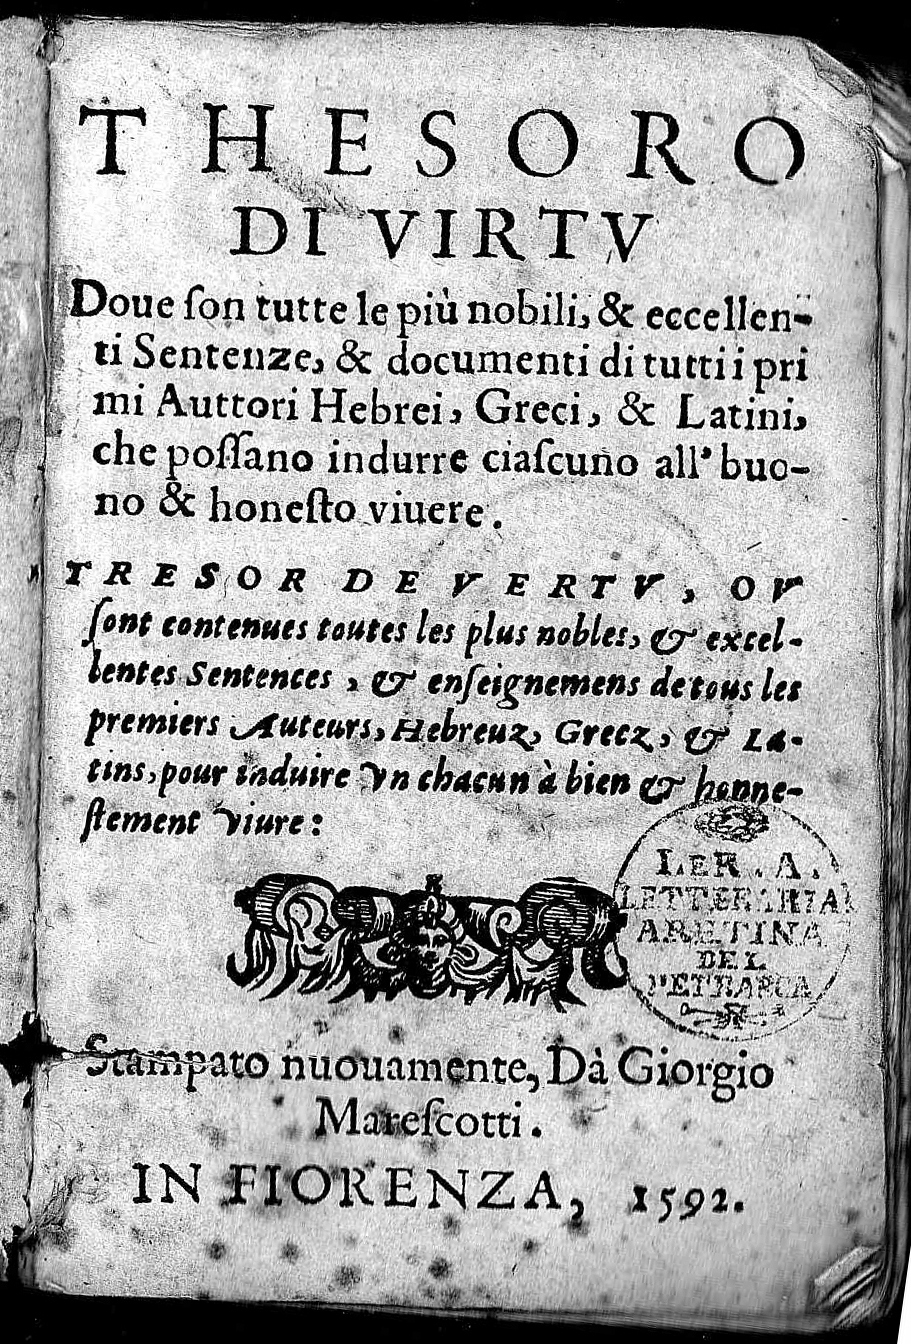 THESORO
DI VIRTV
Doue ſon tutte le più nobili, & eccellen-
ti Sentenze, & documenti di tutti i pri
mi Auttori Hebrei, Greci, & Latini,
che poſſano indurre ciaſcuno all' buo-
no & honeſto viuere.
TRESOR DE VERTV, OV
ſont contenues toutes les plus nobles, & excel-
lentes Sentences, & enſeignemens de tous les
premiers Auteurs, Hebreuz, Grecz, & La-
tins, pour induire vn chacun à bien & honne-
ſtement viure:
LETTERARIA
ARETINA
DEL
PETRARCA
Stampato nuouamente, Dà Giorgio
Mareſcotti.
IN FIORENZA, 1592.